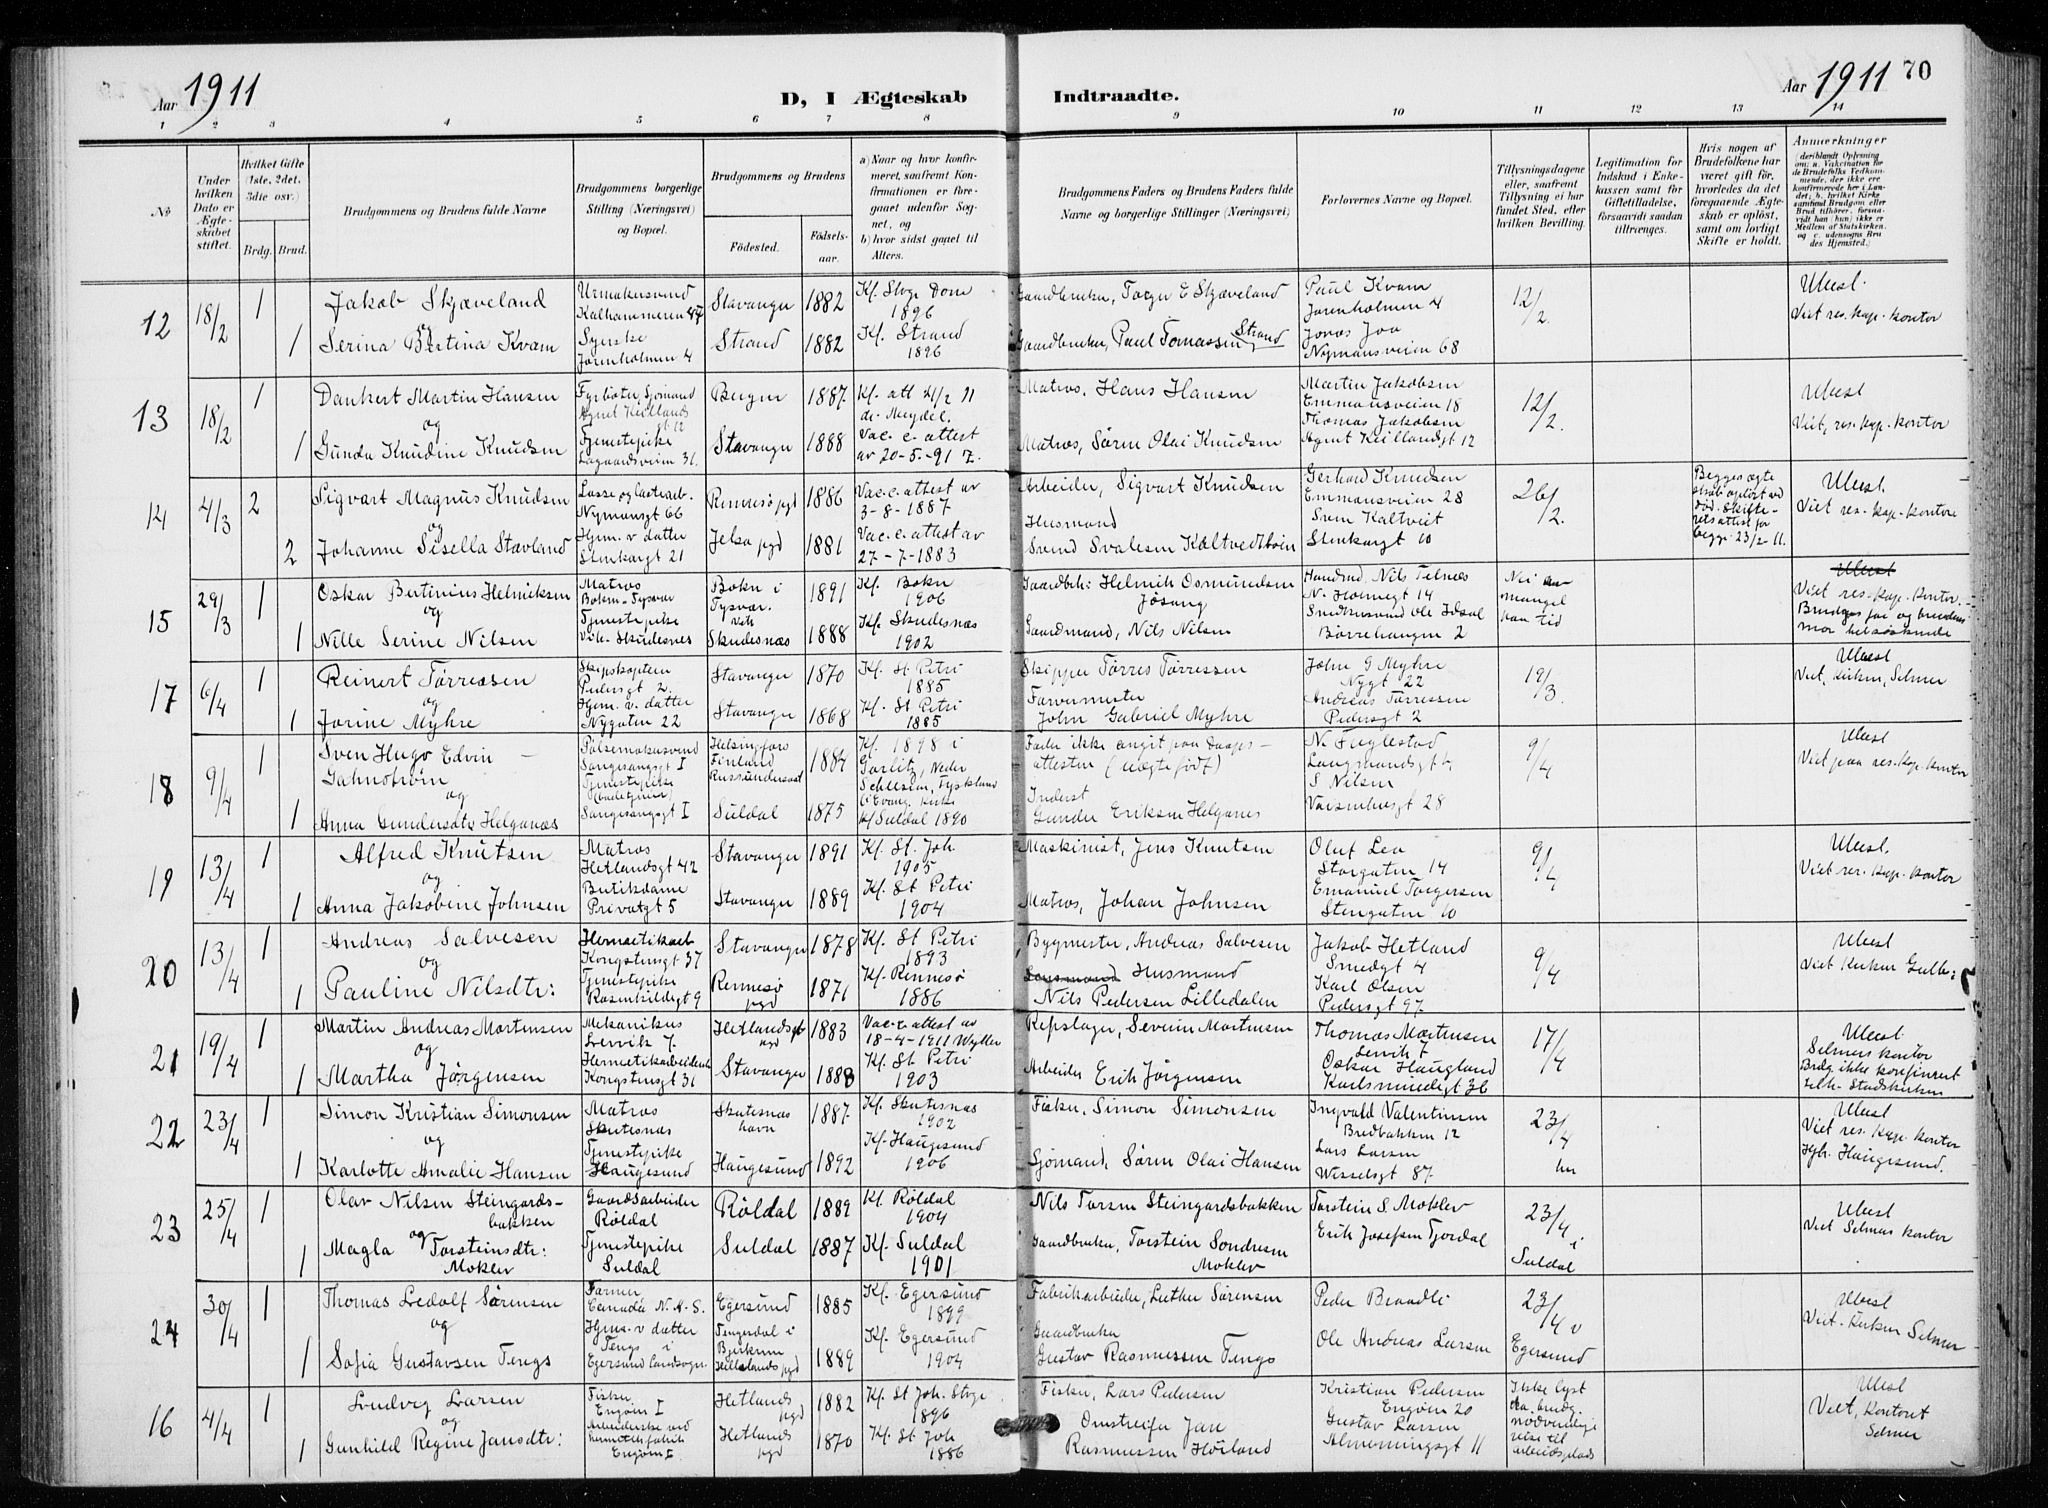 Aar 1911
D, I Ægteskab Indtraadte.
Aar 1911 70
1 2 3 4 5 6 7 8 9 10 11 12 13 14
No
Under hvilken Dato er Ægteskabet stiftet.
Hvilket Gifte (1ste, 2det, 3die osv.)
Brdg. Brud.
Brudgommens og Brudens fulde Navne
Brudgommens borgerlige Stilling (Næringsvei) og Bopæl.
Brudgommens og Brudens
Fødested. Fødselsaar.
a) Naar og hvor konfirmeret, saafremt Konfirmationen er foregaaet udenfor Sognet, og
b) hvor sidst gaaet til Alters.
Brudgommens Faders og Brudens Faders fulde Navne og borgerlige Stillinger (Næringsvei)
Forlovernes Navne og Bopæl.
Tillysningsdagene eller, saafremt Tillysning ei har fundet Sted, efter hvilken Bevilling.
Legitimation for Indskud i Enkekassen samt for Giftetilladelse, forsaavidt saadan tiltrænges.
Hvis nogen af Brudefolkene har været gift før, hvorledes da det foregaaende Ægteskab er opløst, samt om lovligt Skifte er holdt.
Anmerkninger
12 18/2 1 Jakob Skjæveland Stavanger 1882 Kf. Stvgr Dom 1896 Gaardbruker, Torger E Skjæveland Paul Kvam Jorenholmen 4 12/2. Ubest.
og 1 Serina Bertina Kvam Syerske Jorenholmen 4 Strand 1882 Kf. Strand 1896 Gaardbruker, Paul Tomassen Strand Jonas Joa Nymansveien 68 Viet res. kap. kontor
13 18/2 1 Dankert Martin Hansen Fyrbøter, Sjømand Bergen 1887 Matros, Hans Hansen Martin Jakobsen Emmansveien 18 12/2. Ubest
og 1 Gunda Knudine Knudsen Tjenestepike Lagaardsveien 31 Stavanger 1888 Vac. c. attest av 20-5-91 Matros, Søren Olai Knudsen Thomas Jakobsen Agent Kiellandsgt 12 Viet, res. kap. kontor
14 4/3 2 Sigvart Magnus Knudsen Nymansgt 66 Rennesø pgd 1886 Vac. c. attest av 3-8-1887 Arbeider, Sigvart Knudsen Gerhard Knudsen Emmansveien 28 26/2. Ubest.
og 2 Johanne Sisella Stavland Hjem. v datter Stenkargt 21 Jelsa pgd 1881 Vac. c. attest av 27-7-1883 Husmand Svend Svalesen Kaltvedtveien Sven Kaltveit Stenkargt 10 Begges ægteskab opløst ved død. Skifteretsattest for begge 23/2-11. Viet res. kap. kontor
15 29/3 1 Oskar Bertinius Helmiksen Matros Bokn Tysvær Bokn i Tysvær. 1891 Kf. Bokn 1906 Gaardbr: Helmik Osmundsen Jøsang Nils N. Holmegt 14 mangel paa tid Ubest
og 1 Nille Serine Nilsen Tjenestepike Vik Skudesnes Vik Skudesnæs 1888 Kf. Skudesnæs 1902 Gaardmand, Nils Nilsen Snedkersvend Ole Idsal Børrehaugen 2 Viet res. kap. kontor. Brudgs far og brudens mor helsøskende
17 6/4 1 Reinert Tørressen Skipskaptein Pedersgt 2. Stavanger 1870 Kf. St Petri 1885 Skipper Tørres Tørressen John G Myhre Nygt 22 19/3. Ubest
og 1 Jorine Myhre Hjem. v. datter Nygaten 22 Stavanger 1868 Kf. St Petri 1885 Farvermester John Gabriel Myhre Andreas Tørressen Pedersgt 2 Viet, kirken, Selmer
18 9/4 1 Sven Hugo Edvin Pølsemakersvend Sangesangsgt I Helsingfors Finland 1884 Kf. 1898 i Görlitz, Neder Schlesien, Tyskland Fader ikke angit paa daapsattesten (uægte født) N. Fuglestad Langmandsgt 9/4 Ubest
og 1 Anna Gundersdtr Helganæs Tjenestepike Sangesangsgt I Suldal 1875 Kf Suldal 1890 Inderst Gunder Eriksen Helganes S Nilsen Vaisenhusgt 28 Viet paa res. kap. kontor
19 13/4 1 Alfred Knutsen Matros Hetlandsgt 42 Stavanger 1891 Kf. St. Joh. 1905 Maskinist, Jens Knutsen Oluf Lea Storgaten 14 9/4 Ubest.
og 1 Anna Jakobine Johnsen Butikdame Privatgt 5 Stavanger 1889 Kf. St Petri 1904 Matros, Johan Johnsen Emanuel Torgersen Stengaten 10 Viet res. kap. kontor
20 13/4 1 Andreas Salvesen Hermetikarb Kongstensgt 37 Stavanger 1878 Kf. St Petri 1893 Bygmester, Andreas Salvesen Jakob Hetland Smedgt 4 9/4 Ubest
og 1 Pauline Nilsdtr: Tjenestepike Rosenkildegt 9 Rennesø pgd 1871 Kf. Rennesø 1886 Husmand Nils Pedersen Lilledalen Karl Olsen Pedersgt 97 Viet Kirken
21 19/4 1 Martin Andreas Mortensen Mekanikus Lervik 7. Hetlands pgd 1883 Vac. c. attest av 18-4-1911 Wyller Repslager, Severin Mortensen Thomas Mortensen Lervik 7 17/4 Ubest.
og 1 Martha Jørgensen Hermetikarbeiderske Kongstensgt 31 Stavanger 1888 Kf. St Petri 1903 Arbeider Erik Jørgensen Oskar Haugland Karlsmindegt 36 Selmers kontor Brdg. ikke konfirmert
22 23/4 1 Simon Kristian Simonsen Matros Skutesnæs Skutesnæs havn 1887 Kf. Skutesnæs 1902 Fisker, Simon Simonsen Ingvald Valentinsen Bredbakken 12 23/4 Ubest
og 1 Karlotte Amalie Hansen Tjenestepike Haugesund Haugesund 1892 Kf. Haugesund 1906 Sjømand, Søren Olai Hansen Lars Larsen Wesselsgt 87. Viet res. kap. kontor Hjh. Haugesund.
23 25/4 1 Olav Nilsen Steingardsbakken Gaardsarbeider Røldal Røldal 1889 Kf. Røldal 1904 Nils Torsen Steingardsbakken Torstein S. Moklev 23/4 i Suldal Ubest
og 1 Magla Torsteinsdtr: Moklev Tjenestepike Suldal Suldal 1887 Kf. Suldal 1901 Gaardbruker, Torstein Sondresen Moklev Erik Josefsen Fjordal Viet Selmers kontor
24 30/4 1 Thomas Ledolf Sørensen Farmer Canada N.A.S. Egersund 1885 Kf. Egersund 1899 Fabrikarbeider, Luther Sørensen Peder Brandli 23/4 Egersund Ubest
og 1 Sofia Gustavsen Tengs Hjem. v datter Tengs i Egersund landsogn. Tengesdal i Bjerkrem Hellelands pgd 1889 Kf. Egersund 1904 Gaardbruker Gustav Rasmussen Tengs Ole Andreas Larsen Viet. kirken Selmer
16 4/4 1 Ludvig Larsen Fisker Engøen I Hetlands pgd 1882 Kf. St Joh. Stvgr 1896 Fisker, Lars Pedersen Kristian Pedersen Engøen 20 Ikke lyst da brudg. nødvendige reise til arbeidsplads Ubest
og 1 Gunhild Regine Jansdtr: Arbeiderske ved hermetikfabrik Engøen I Hetlands pgd 1870 Kf. St Joh 1886 Omstreifer Jan Rasmussen Høiland Gustav Larsen Almenningsgt 11 Viet, kontoret Selmer